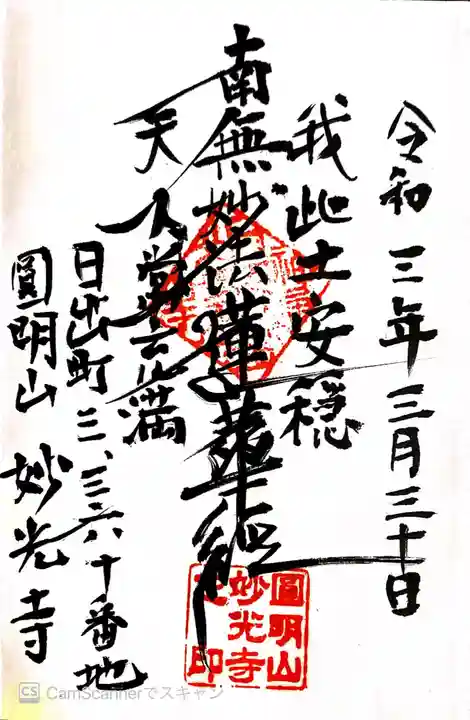 令和三年三月三十日
我此土安穏
南無妙法蓮華経
天人常充満
日出町三、三六十番地
圓明山 妙光寺
圓明山
妙光寺
之印
CS CamScannerでスキャン